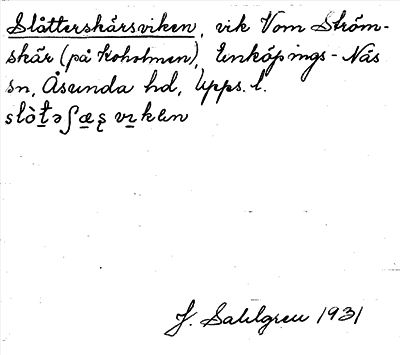 Slåtterskärsviken, vik V om Ström-
skär (på Koholmen), Enköpings-Näs
sn, Åsunda hd, Upps. l.
J. Sahlgren 1931